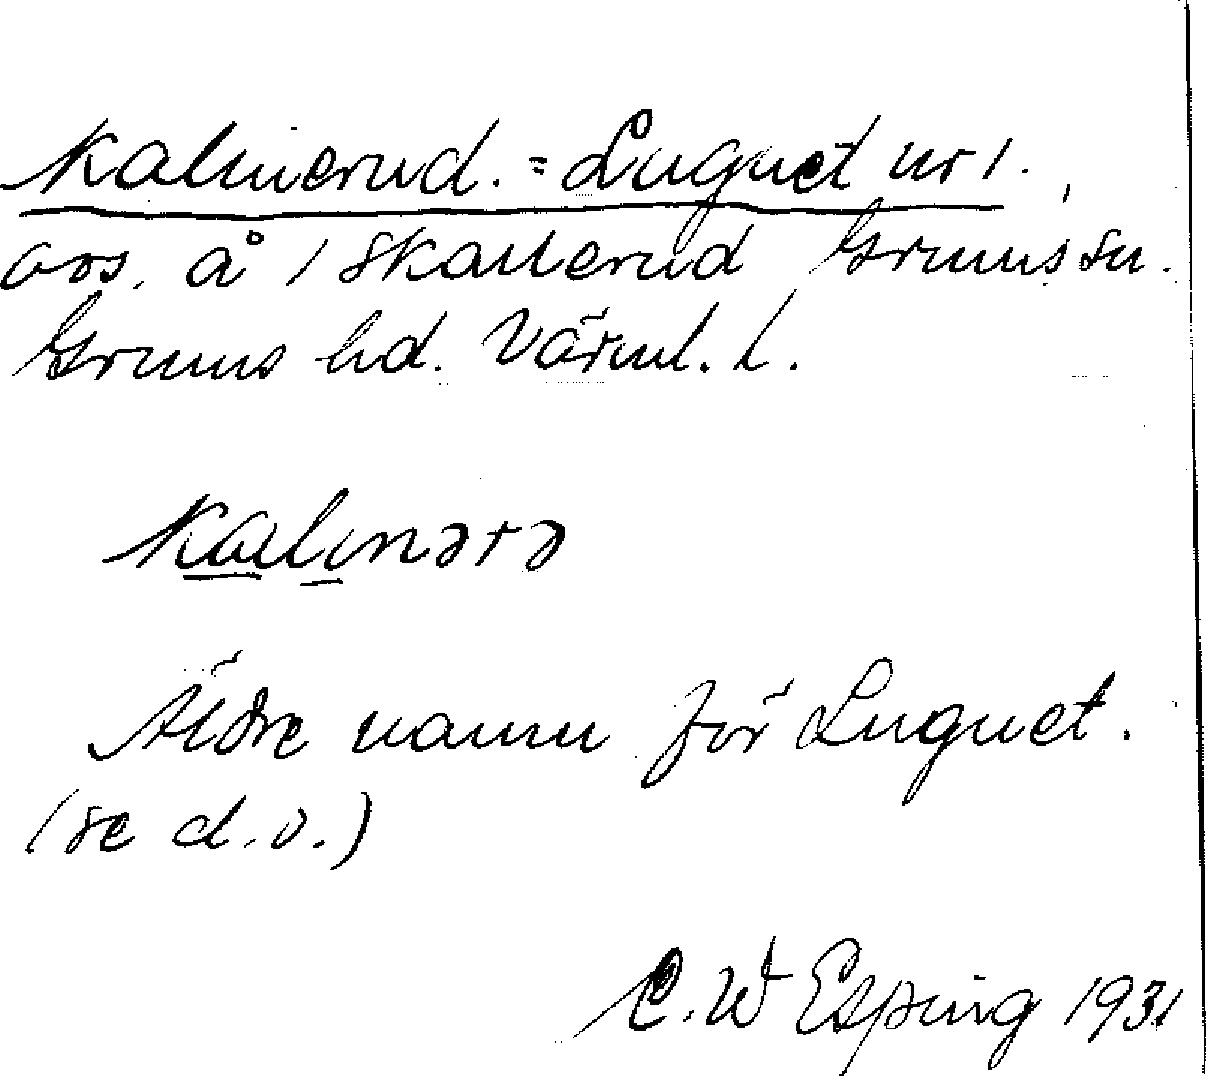 Kalvierud. = Lugnet nr 1.
avs. å 1 Skallerud Grums sn.
Grums hd. Värml. l.
Kalvnərə
Äldre namn för Lugnet.
(se d. o.)
C. W Esping 1931